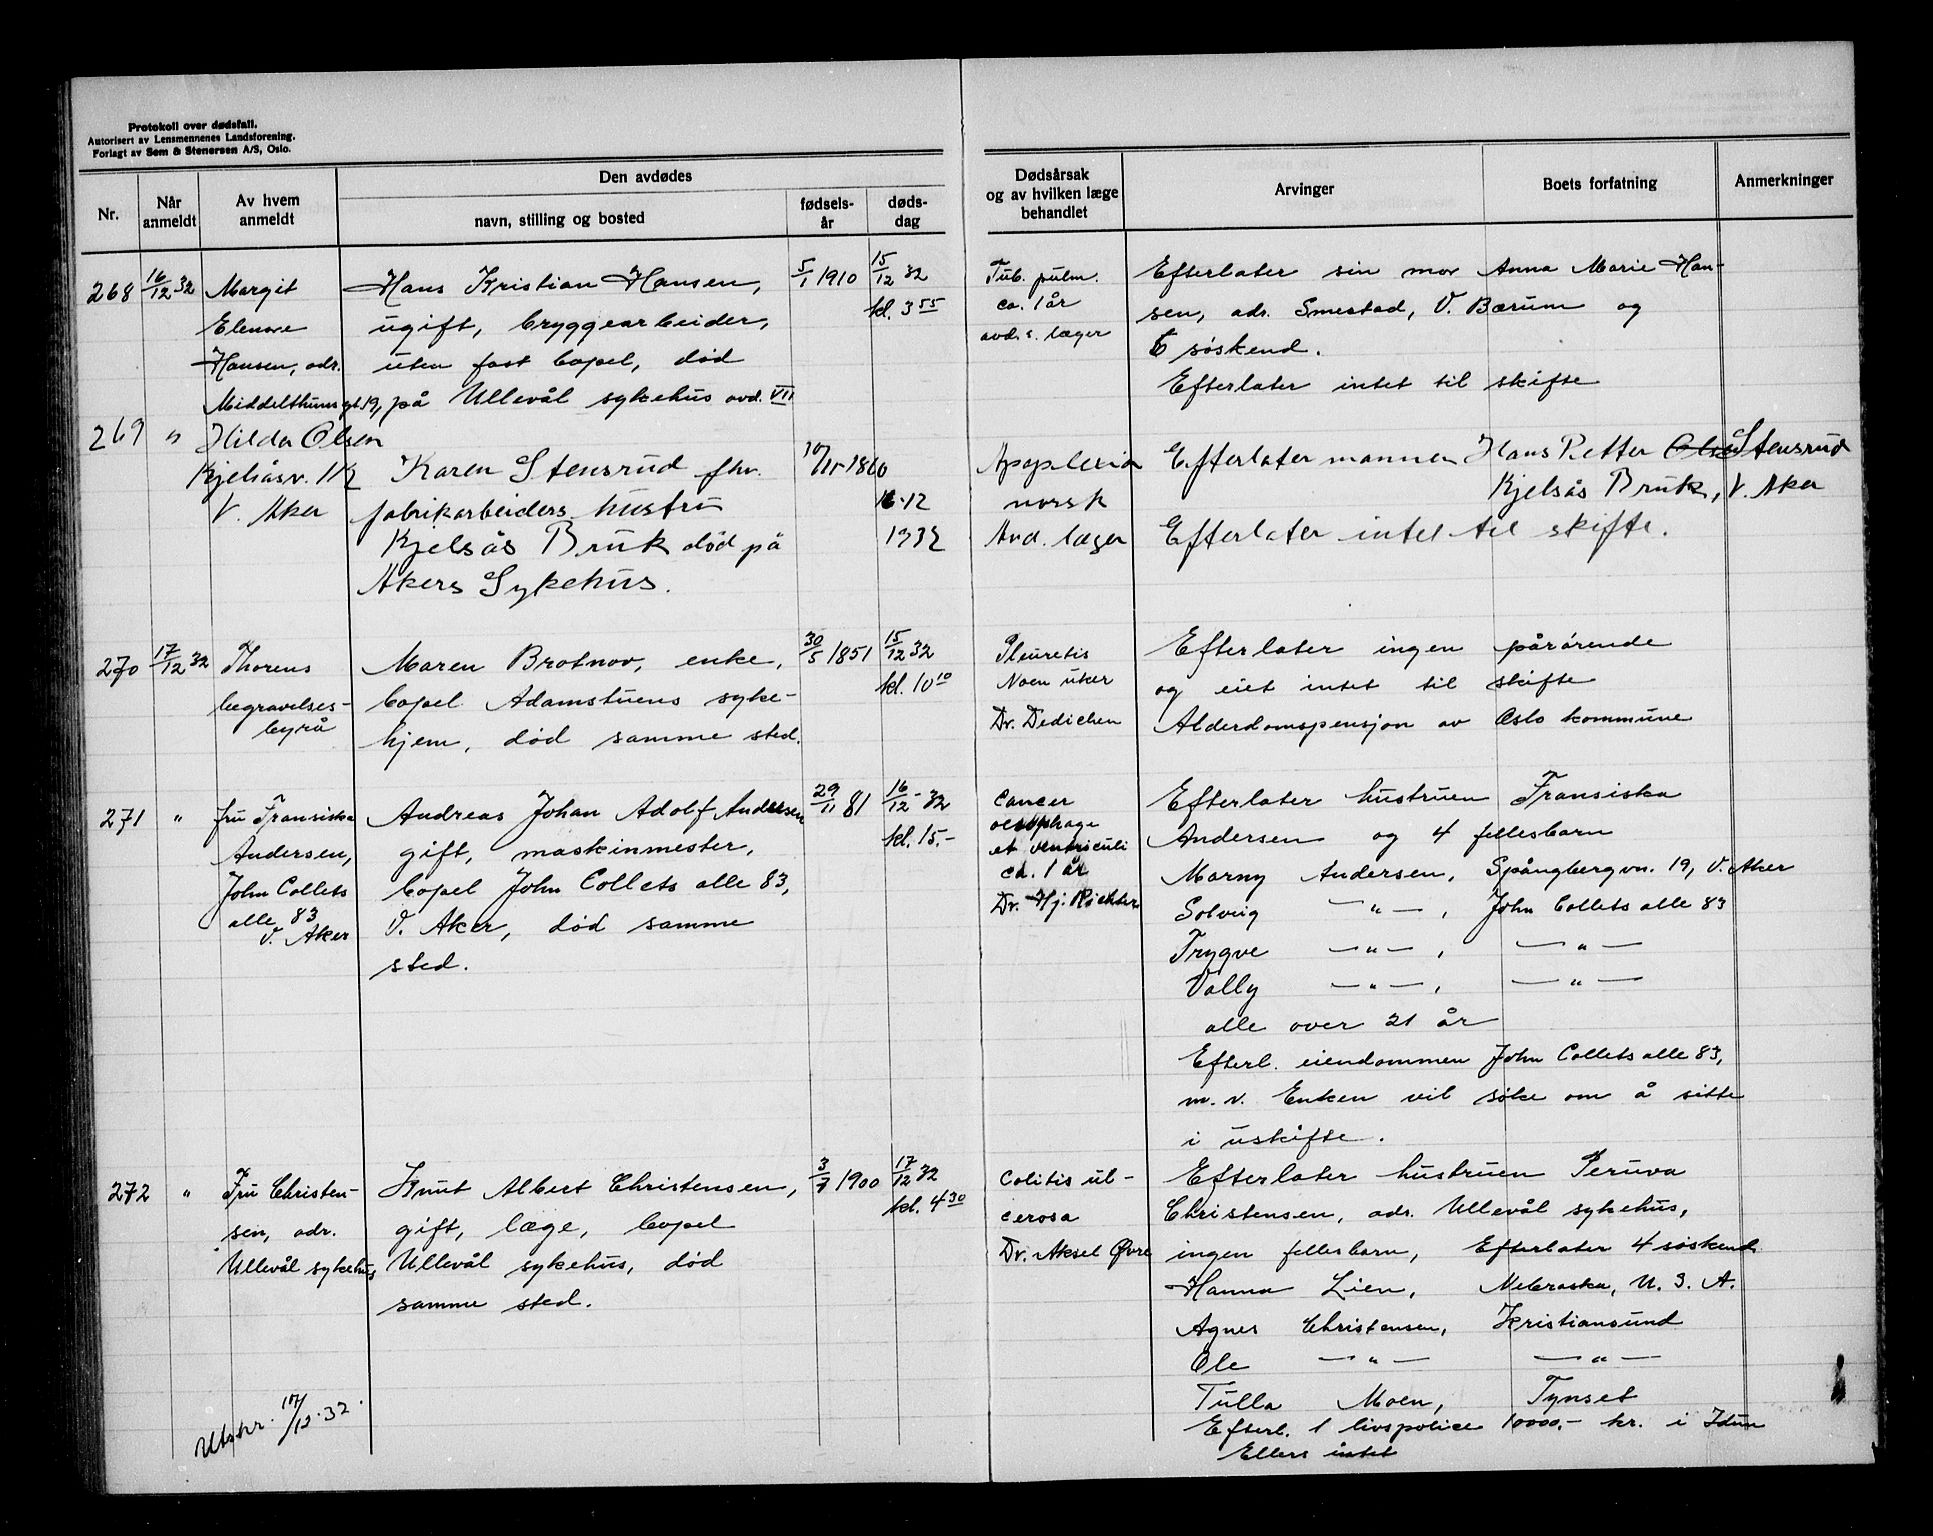 Protokoll over dødsfall.
Autorisert av Lensmennenes Landsforening.
Forlagt av Sem & Stenersen A/S, Oslo.
Nr.
Når anmeldt
Av hvem anmeldt
Den avdødes
navn, stilling og bosted
fødsels-år
døds-dag
Dødsårsak og av hvilken læge behandlet
Arvinger
Boets forfatning
Anmerkninger
268
16/12 32
Margit
Elenore
Hansen, adr.
Middelthunsgt. 19,
Hans Kristian Hansen,
ugift, bryggearbeider,
uten fast bopel, død
på Ullevål sykehus avd. VII
5/1 1910
15/12 32
kl. 3 55
Tub. pulm.
ca. 1 år
avd.s. læger
Efterlater sin mor Anna Marie Han-
sen, adr. Smestad, V. Bærum og
6 søskend.
Efterlater intet til skifte
269
"
Hilda Olsen
Kjelsåsv. 112
V. Aker
Karen Stensrud fhv.
fabrikarbeiders hustru
Kjelsås Bruk død på
Akers Sykehus.
10/11-1860
16-12
1932
Apoplexia
norsk
Avd. læger
Efterlater mannen Hans Petter Olsen Stensrud
Kjelsås Bruk, V. Aker
Efterlater intet til skifte.
270
17/12 32
Thorens
begravelses-
byrå
Maren Brotnov, enke,
bopel Adamstuens syke-
hjem, død samme sted.
30/5 1851
15/12 32
kl. 10 10
Pleuretis
Noen uker
Dr. Dedichen
Efterlater ingen pårørende
og eiet intet til skifte
Alderdomspensjon av Oslo kommune
271
"
fru Fransiska
Andersen,
John Collets
alle 83
V. Aker
Andreas Johan Adolf Andersen
gift, maskinmester,
bopel John Collets alle 83,
V. Aker, død samme
sted.
29/11 81
16/12-32
kl. 15.-
Cancer
oesophage
et ventriculi
ca. 1 år
Dr. Hj. Richter
Efterlater hustruen Fransiska
Andersen og 4 fellesbarn
Marny Andersen, Spångbergvn. 19, V. Aker
Solveig -"-, John Collets alle 83
Trygve -"-, -"-
Vally -"-, -"-
alle over 21 år
Efterl. eiendommen John Collets alle 83,
m.v. Enken vil søke om å sitte
i uskifte.
272
"
Fru Christen-
sen, adr.
Ullevål sykehus
Knut Albert Christensen,
gift, læge, bopel
Ullevål sykehus, død
samme sted.
3/7 1900
17/12 32
kl. 4 30
Colitis ul-
cerosa
Dr. Aksel Øvre
Efterlater hustruen Peruva
Christensen, adr. Ullevål sykehus,
ingen fellesbarn, Efterlater 4 søskend
Hanna Lien, Nebraska, U. S. A.
Agnes Christensen, Kristiansund
Ole -"- -"-
Tulla Moen, Tynset
Efterl. 1 livspolice 10000.- kr. i Idun
Ellers intet
Utskr. 17/12.32.